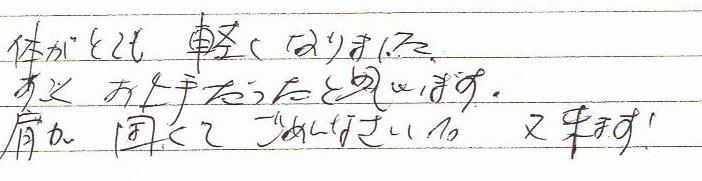 体がとても 軽くなりました。
すごく お上手だったと思います。
肩が 固くて ごめんなさいね。 又来ます!